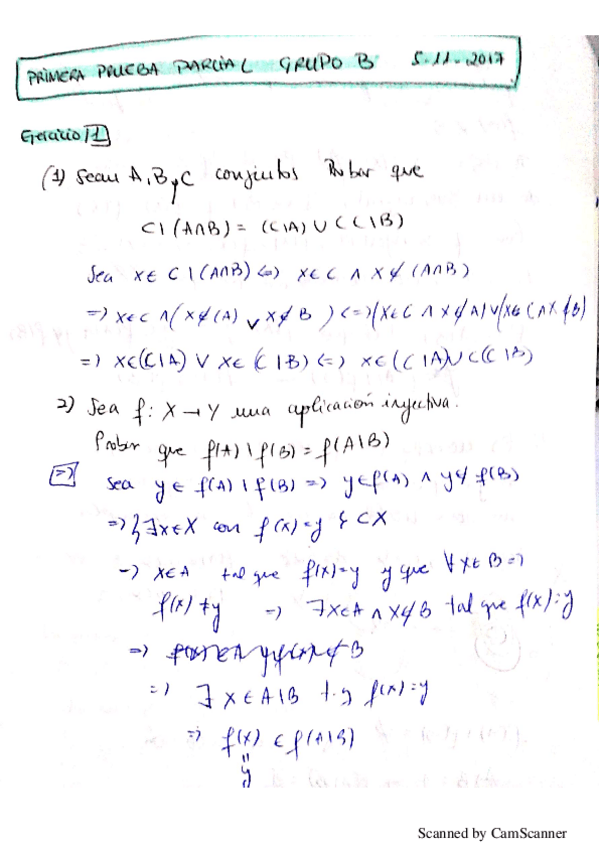 PRIMERA PRUEBA PARCIAL GRUPO B 5-11-2017
Ejercicio 1
(1) Sean A, B y C conjuntos Probar que
C \ (A∩B) = (C\A) ∪ (C\B)
Sea x ∈ C \ (A∩B) <=> x ∈ C ∧ x ∉ (A∩B)
=> x ∈ C ∧ (x ∉ (A) ∨ x ∉ B) <=> (x ∈ C ∧ x ∉ A) ∨ (x ∈ C ∧ x ∉ B)
=> x ∈ (C\A) ∨ x ∈ (C\B) <=> x ∈ (C\A) ∪ (C\B)
2) Sea f: X → Y una aplicación inyectiva.
Probar que f(A) \ f(B) = f(A\B)
=>
Sea y ∈ f(A) \ f(B) => y ∈ f(A) ∧ y ∉ f(B)
=> ∃x∈X con f(x)=y
-> x∈A tal que f(x)=y y que ∀x∈B =>
f(x) ≠ y => ∃x∈A ∧ x∉B tal que f(x)=y
=>
=> ∃ x ∈ A\B t.q f(x)=y
=> f(x) ∈ f(A\B)
=
y
Scanned by CamScanner